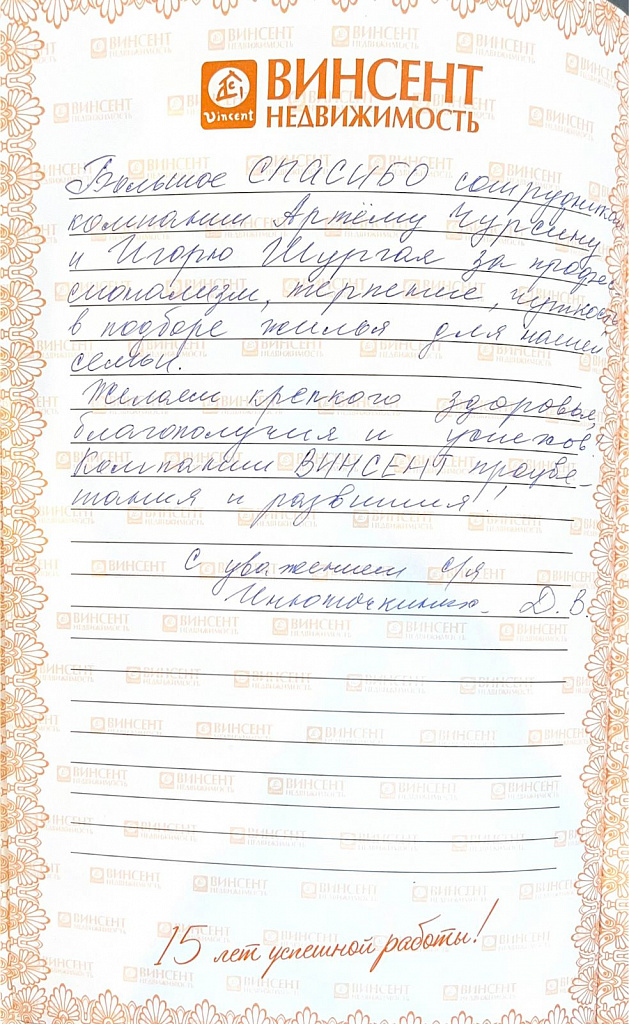 Vincent
ВИНСЕНТ
НЕДВИЖИМОСТЬ
Большое СПАСИБО сотрудникам
компании Артёму Чурсину
и Игорю Шургая за профес-
сионализм, терпение, чуткость
в подборе жилья для нашей
семьи.
Желаем крепкого здоровья,
благополучия и успехов.
Компании ВИНСЕНТ процве-
тания и развития!
С уважением с/я
Д. В.
15 лет успешной работы!